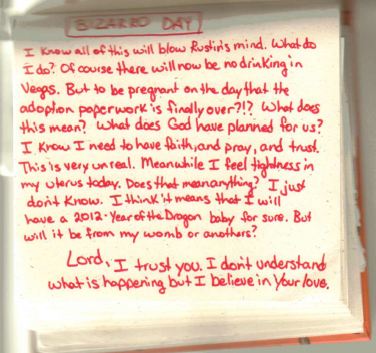 BIZARRO DAY
I know all of this will blow Rustin's mind. What do
I do? Of course there will now be no drinking in
Vegas. But to be pregnant on the day that the
adoption paperwork is finally over?!? What does
this mean? What does God have planned for us?
I know I need to have faith, and pray, and trust.
This is very unreal. Meanwhile I feel tightness in
my uterus today. Does that mean anything? I just
don't know. I think it means that I will
have a 2012-Year of the Dragon baby for sure. But
will it be from my womb or anothers?
Lord, I trust you. I don't understand
what is happening but I believe in Your love.